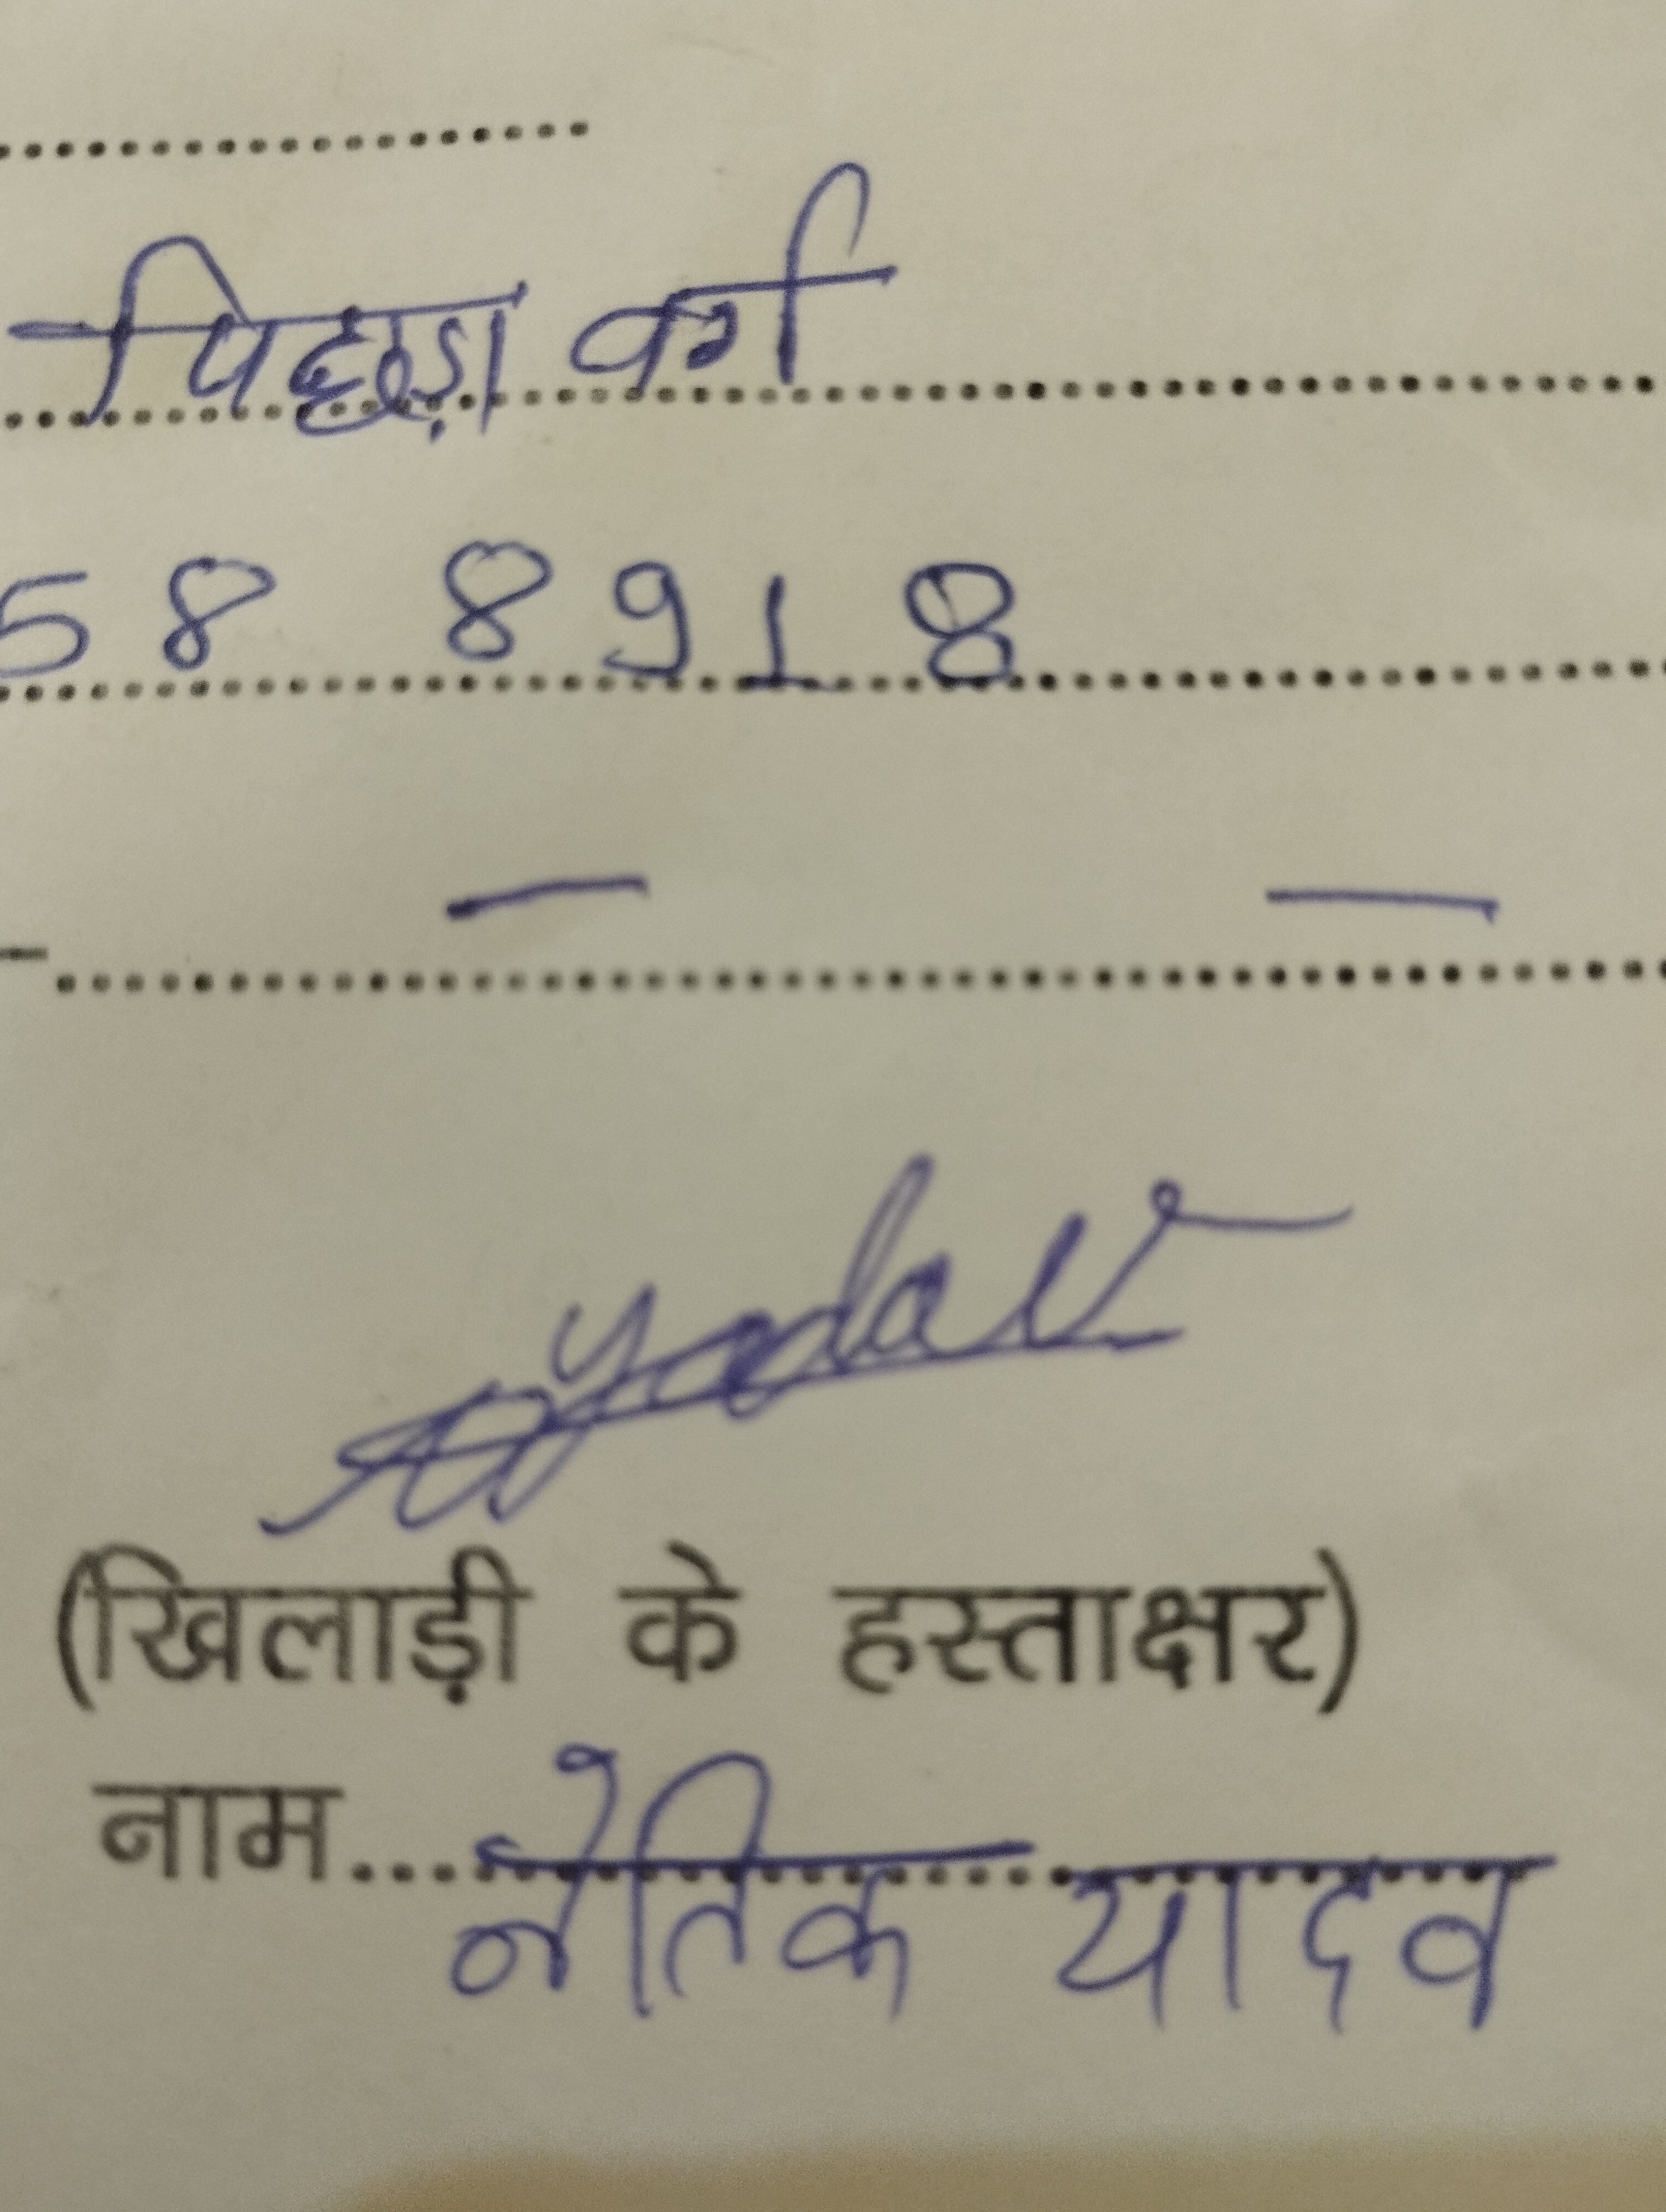 पिछड़ा वर्ग
58 8918
— —
yadav
(खिलाड़ी के हस्ताक्षर)
नाम... नैतिक यादव